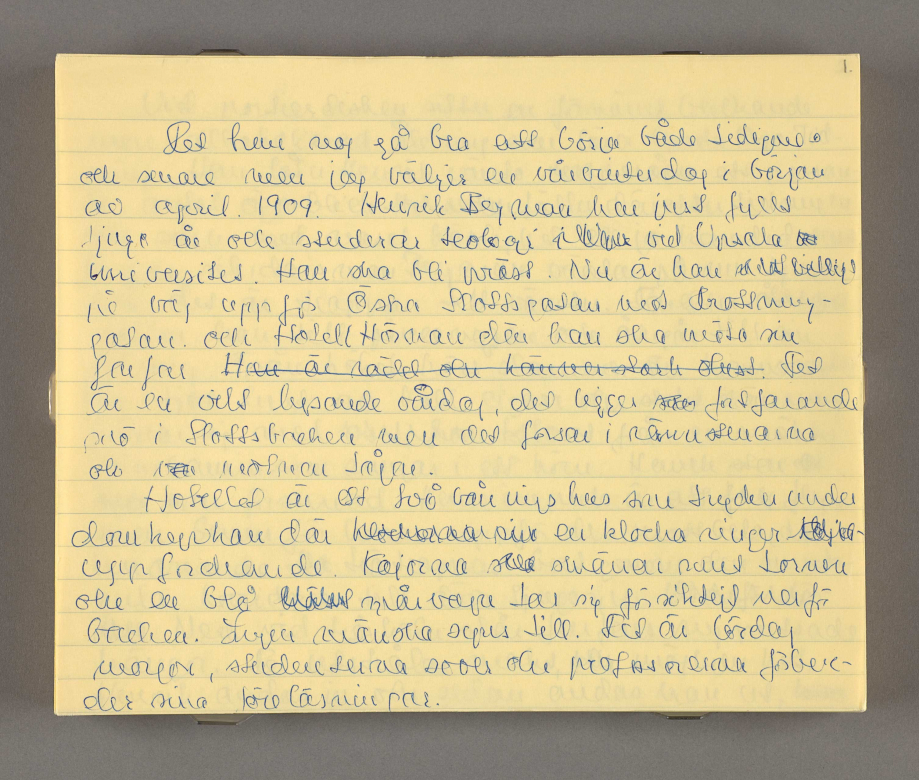 1.
Det kan nog gå bra att börja både tidigare
och senare men jag väljer en vårvinterdag i början
av april. 1909. Henrik Bergman har just fyllt
tjugo år och studerar teologi vid Upsala
universitet. Han ska bli präst. Nu är han
på väg upp för Östra Slottsgatan mot Drottning-
gatan. och Hotell Hörnan där han ska möta sin
farfar. Han är rädd och känner stark olust. Det
är en vitt lysande vårdag, det ligger fortfarande
snö i Slottsbacken men det forsar i rännstenarna
och molnen tågar.
Hotellet är ett två vånings hus som trycker under
domkyrkan där en klocka ringer
uppfordrande. Kajorna skränar runt tornen
och en blå spårvagn tar sig försiktigt nerför
backen. Ingen människa syns till. Det är lördag
morgon, studenterna sover och professorerna förber-
der sina föreläsningar.